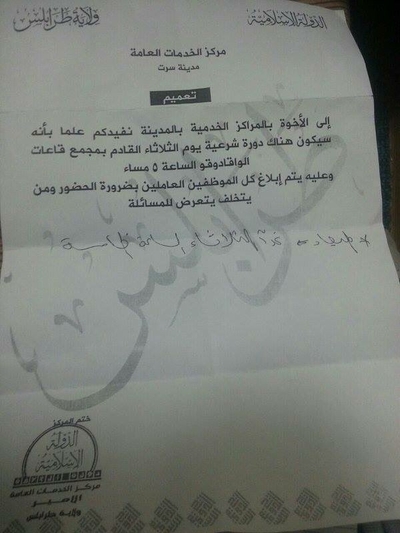 الدولة الإسلامية
ولاية طرابلس
مركز الخدمات العامة
مدينة سرت
تعميم
إلى الأخوة بالمراكز الخدمية بالمدينة نفيدكم علما بأنه
سيكون هناك دورة شرعية يوم الثلاثاء القادم بمجمع قاعات
الواقادوقو الساعة ٥ مساء
وعليه يتم إبلاغ كل الموظفين العاملين بضرورة الحضور ومن
يتخلف يتعرض للمسائلة
الثلاثاء الساعة الخامسة
طرابلس
ختم المركز
الدولة
الإسلامية
مركز الخدمات العامة
ولاية طرابلس